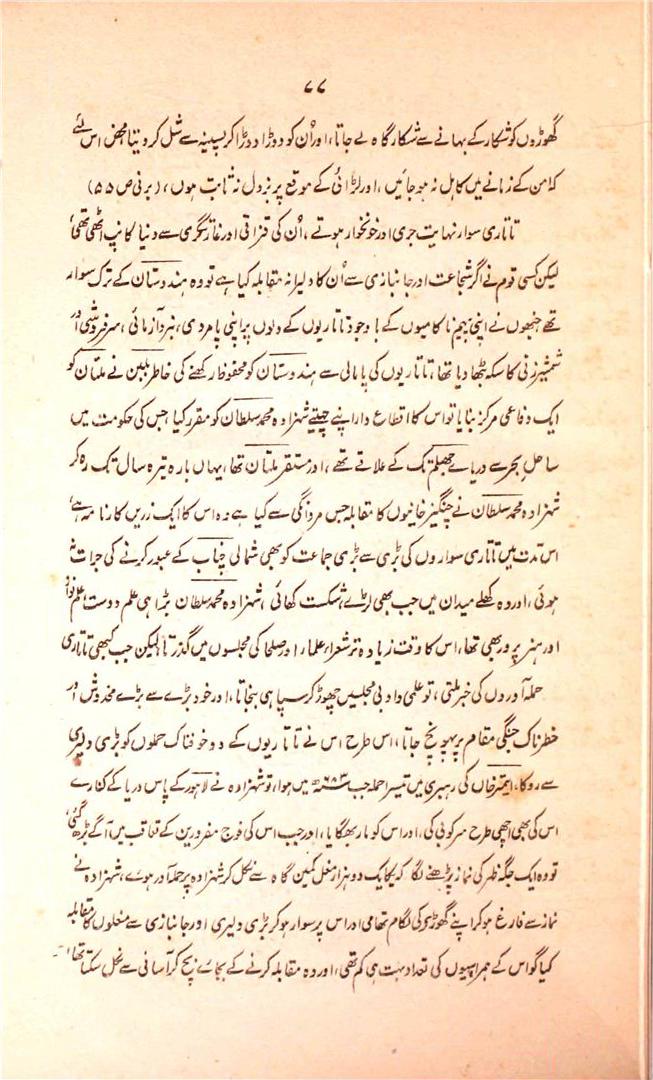 ۷۷
گھوڑوں کو شکار کے بہانے سے شکار گاہ لے جاتا، اور اُن کو دوڑا دوڑا کر پسینہ سے شل کر دیتا، محض اس لئے
کہ امن کے زمانے میں کاہل نہ ہو جائیں، اور لڑائی کے موقع پر بزدل نہ ثابت ہوں، (برنی ص ۵۵)
تاتاری سوار نہایت جری اور خونخوار ہوتے، اُن کی قزاقی اور غارتگری سے دنیا کانپ اٹھی تھی،
لیکن کسی قوم نے اگر شجاعت اور جانبازی سے اُن کا دلیرانہ مقابلہ کیا ہے تو وہ ہندوستان کے ترک سوار
تھے جنھوں نے اپنی پیہم ناکامیوں کے باوجود تاتاریوں کے دلوں پر اپنی پامردی، نبرد آزمائی، سرفروشی اور
شمشیرزنی کا سکہ بٹھا دیا تھا، تاتاریوں کی پامالی سے ہندوستان کو محفوظ رکھنے کی خاطر بلبن نے ملتان کو
ایک دفاعی مرکز بنایا تو اس کا اقطاع دار اپنے چہیتے شہزادہ محمد سلطان کو مقرر کیا جس کی حکومت میں
ساحل بحر سے دریائے جھیلم تک کے علاقے تھے، اور مستقر ملتان تھا، یہاں بارہ تیرہ سال تک رہ کر
شہزادہ محمد سلطان نے چنگیز خانیوں کا مقابلہ جس مردانگی سے کیا ہے وہ اس کا ایک زریں کارنامہ ہے،
اس مدت میں تاتاری سواروں کی بڑی سے بڑی جماعت کو بھی شمالی چناب کے عبور کرنے کی جرات نہ
ہوئی، اور وہ کھلے میدان میں جب بھی لڑے، شکست کھائی، شہزادہ محمد سلطان بڑا ہی علم دوست، علم نواز
اور ہنر پرور بھی تھا، اس کا وقت زیادہ تر شعراء، علماء اور صلحا کی مجلسوں میں گذرتا، لیکن جب کبھی تاتاری
حملہ آوروں کی خبر ملتی، تو علمی و ادبی مجلسیں چھوڑ کر سپاہی بنجاتا، اور خود بڑے سے بڑے مخدوش اور
خطرناک جنگی مقام پر پہونچ جاتا، اس طرح اس نے تاتاریوں کے دو خوفناک حملوں کو بڑی دلیری
سے روکا، ایتمر خاں کی رہبری میں تیسرا حملہ جب ۶۸۳ھ میں ہوا، تو شہزادہ نے لاہور کے پاس دریا کے کنارے
اس کی بھی اچھی طرح سرکوبی کی، اور اس کو مار بھگایا، اور جب اس کی فوج مفرورین کے تعاقب میں آگے بڑھ گئی،
تو وہ ایک جگہ ظہر کی نماز پڑھنے لگا کہ یکایک دو ہزار مغل کمین گاہ سے نکل کر شہزادہ پر حملہ آور ہوئے، شہزادہ نے
نماز سے فارغ ہو کر اپنے گھوڑی کی لگام تھامی اور اس پر سوار ہو کر بڑی دلیری اور جانبازی سے مغلوں کا مقابلہ
کیا گو اس کے ہمراہیوں کی تعداد بہت ہی کم تھی، اور وہ مقابلہ کرنے کے بجائے بچ کر آسانی سے نکل سکتا تھا،